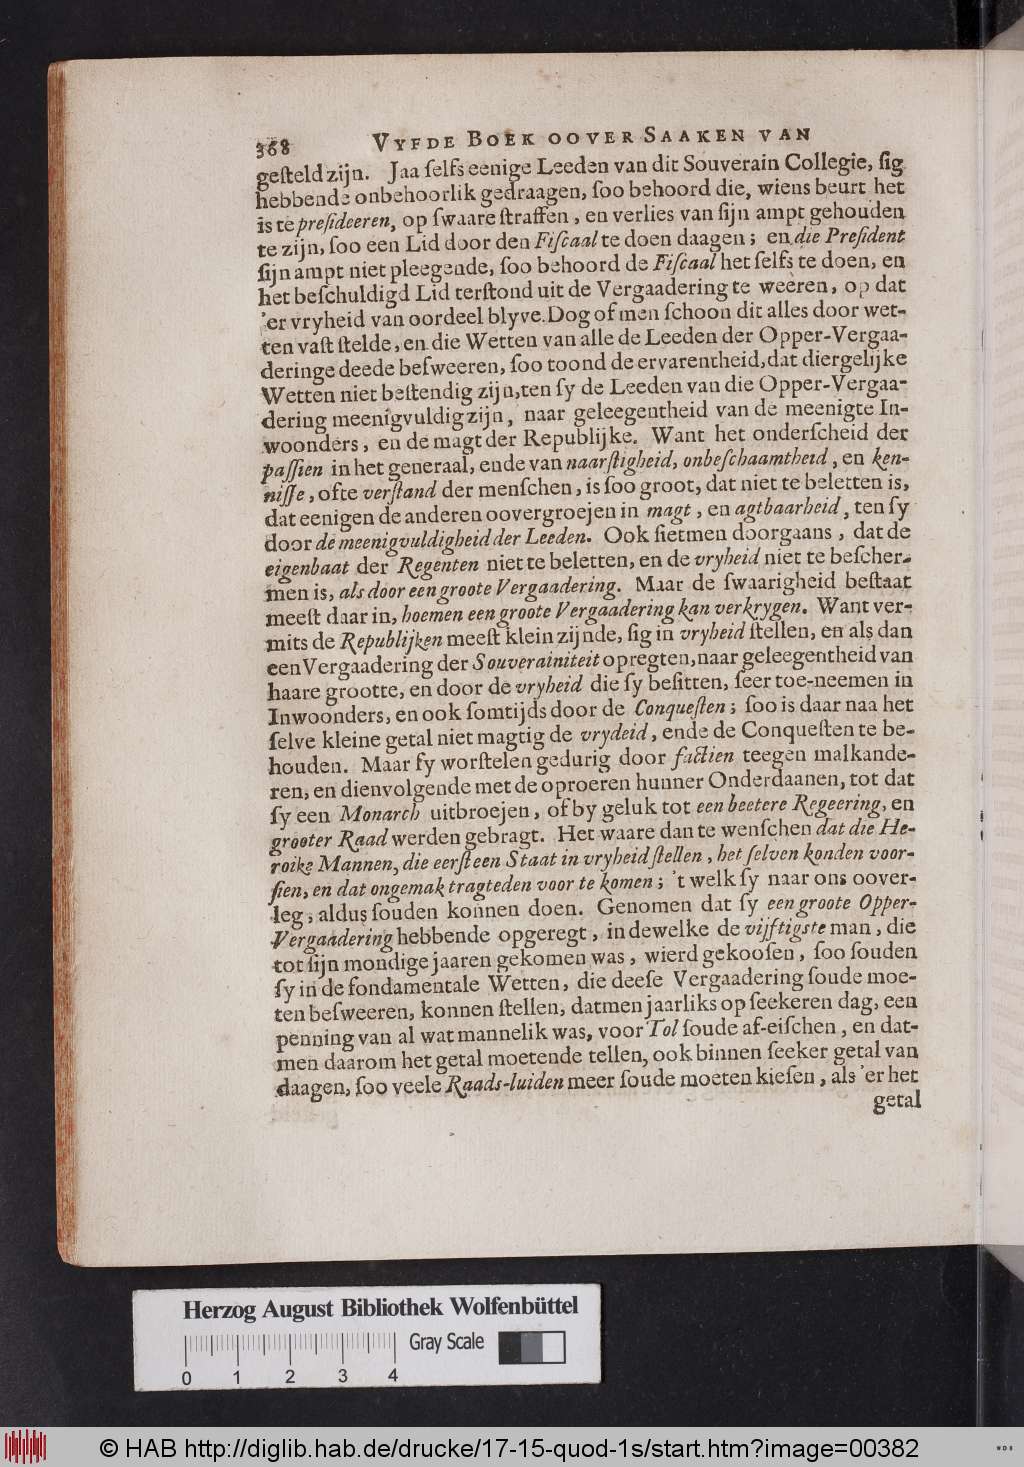 368 VYFDE BOEK OOVER SAAKEN VAN
geſteld zijn. Jaa ſelfs eenige Leeden van dit Souverain Collegie, ſig
hebbende onbehoorlik gedraagen, ſoo behoord die, wiens beurt het
is te preſideeren, op ſwaare ſtraffen, en verlies van ſijn ampt gehouden
te zijn, ſoo een Lid door den Fiſcaal te doen daagen; en die Preſident
ſijn ampt niet pleegende, ſoo behoord de Fiſcaal het ſelfs te doen, en
het beſchuldigd Lid terſtond uit de Vergaadering te weeren, op dat
'er vryheid van oordeel blyve. Dog of men ſchoon dit alles door wet-
ten vaſt ſtelde, en die Wetten van alle de Leeden der Opper-Vergaa-
deringe deede beſweeren, ſoo toond de ervarentheid, dat diergelijke
Wetten niet beſtendig zijn, ten ſy de Leeden van die Opper-Vergaa-
dering meenigvuldig zijn, naar geleegentheid van de meenigte In-
woonders, en de magt der Republijke. Want het onderſcheid der
paſſien in het generaal, ende van naarſtigheid, onbeſchaamtheid, en ken-
niſſe, ofte verſtand der menſchen, is ſoo groot, dat niet te beletten is,
dat eenigen de anderen oovergroejen in magt, en agtbaarheid, ten ſy
door de meenigvuldigheid der Leeden. Ook ſietmen doorgaans, dat de
eigenbaat der Regenten niet te beletten, en de vryheid niet te beſcher-
men is, als door een groote Vergaadering. Maar de ſwaarigheid beſtaat
meeſt daar in, hoemen een groote Vergaadering kan verkrygen. Want ver-
mits de Republijken meeſt klein zijnde, ſig in vryheid ſtellen, en als dan
een Vergaadering der Souverainiteit opregten, naar geleegentheid van
haare grootte, en door de vryheid die ſy beſitten, ſeer toe-neemen in
Inwoonders, en ook ſomtijds door de Conqueſten; ſoo is daar naa het
ſelve kleine getal niet magtig de vrydeid, ende de Conqueſten te be-
houden. Maar ſy worſtelen gedurig door factien teegen malkande-
ren, en dienvolgende met de oproeren hunner Onderdaanen, tot dat
ſy een Monarch uitbroejen, of by geluk tot een beetere Regeering, en
grooter Raad werden gebragt. Het waare dan te wenſchen dat die He-
roike Mannen, die eerſt een Staat in vryheid ſtellen, het ſelven konden voor-
ſien, en dat ongemak tragteden voor te komen; 't welk ſy naar ons oover-
leg, aldus ſouden konnen doen. Genomen dat ſy een groote Opper-
Vergaadering hebbende opgeregt, in dewelke de vijftigste man, die
tot ſijn mondige jaaren gekomen was, wierd gekooſen, ſoo ſouden
ſy in de fondamentale Wetten, die deeſe Vergaadering ſoude moe-
ten beſweeren, konnen ſtellen, datmen jaarliks op ſeekeren dag, een
penning van al wat mannelik was, voor Tol ſoude af-eiſchen, en dat-
men daarom het getal moetende tellen, ook binnen ſeeker getal van
daagen, ſoo veele Raads-luiden meer ſoude moeten kieſen, als 'er het
getal
Herzog August Bibliothek Wolfenbüttel
Gray Scale
0 1 2 3 4
© HAB http://diglib.hab.de/drucke/17-15-quod-1s/start.htm?image=00382